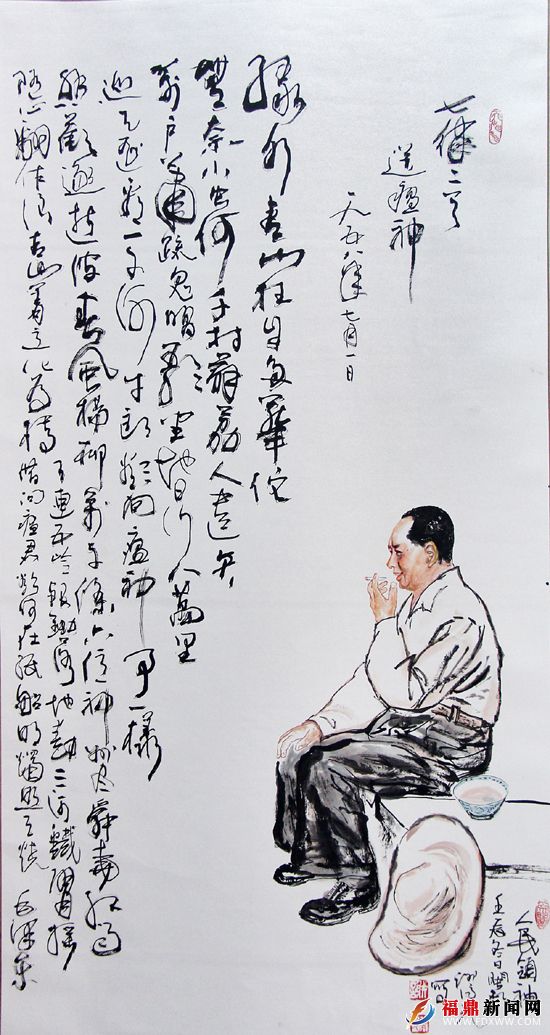 七律二首
送瘟神
一九五八年七月一日
绿水青山枉自多華佗
無奈小虫何千村薜荔人遗矢
萬户萧疏鬼唱歌坐地日行八萬里
巡天遥看一千河牛郎欲问瘟神事一樣
悲歡逐逝波春風楊柳萬千條六億神州尽舜尧红雨
随心翻作浪青山着意化为橋
天連五岭银鋤落地动三河鐵臂摇
借问瘟君欲何往纸船明燭照天烧 毛泽东
人民領袖
壬辰冬日
福鼎新闻网
WWW.FDXWW.COM